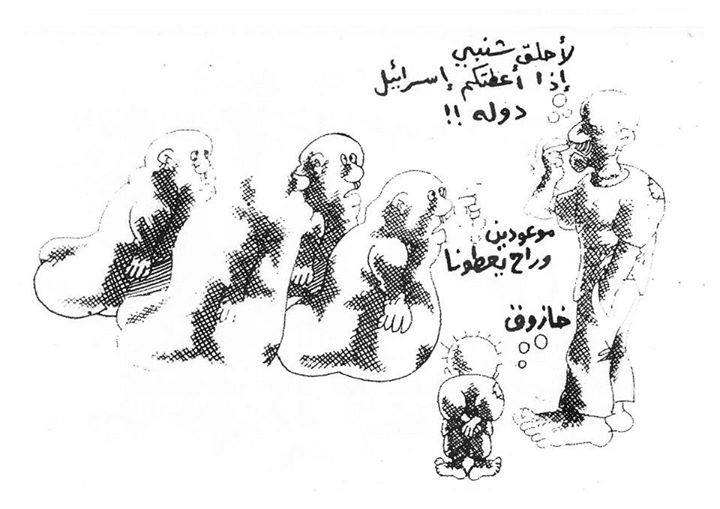 لأحلق شنبي
إذا أعطتكم إسرائيل
دوله !!
موعودين
وراح يعطونا
خازوق